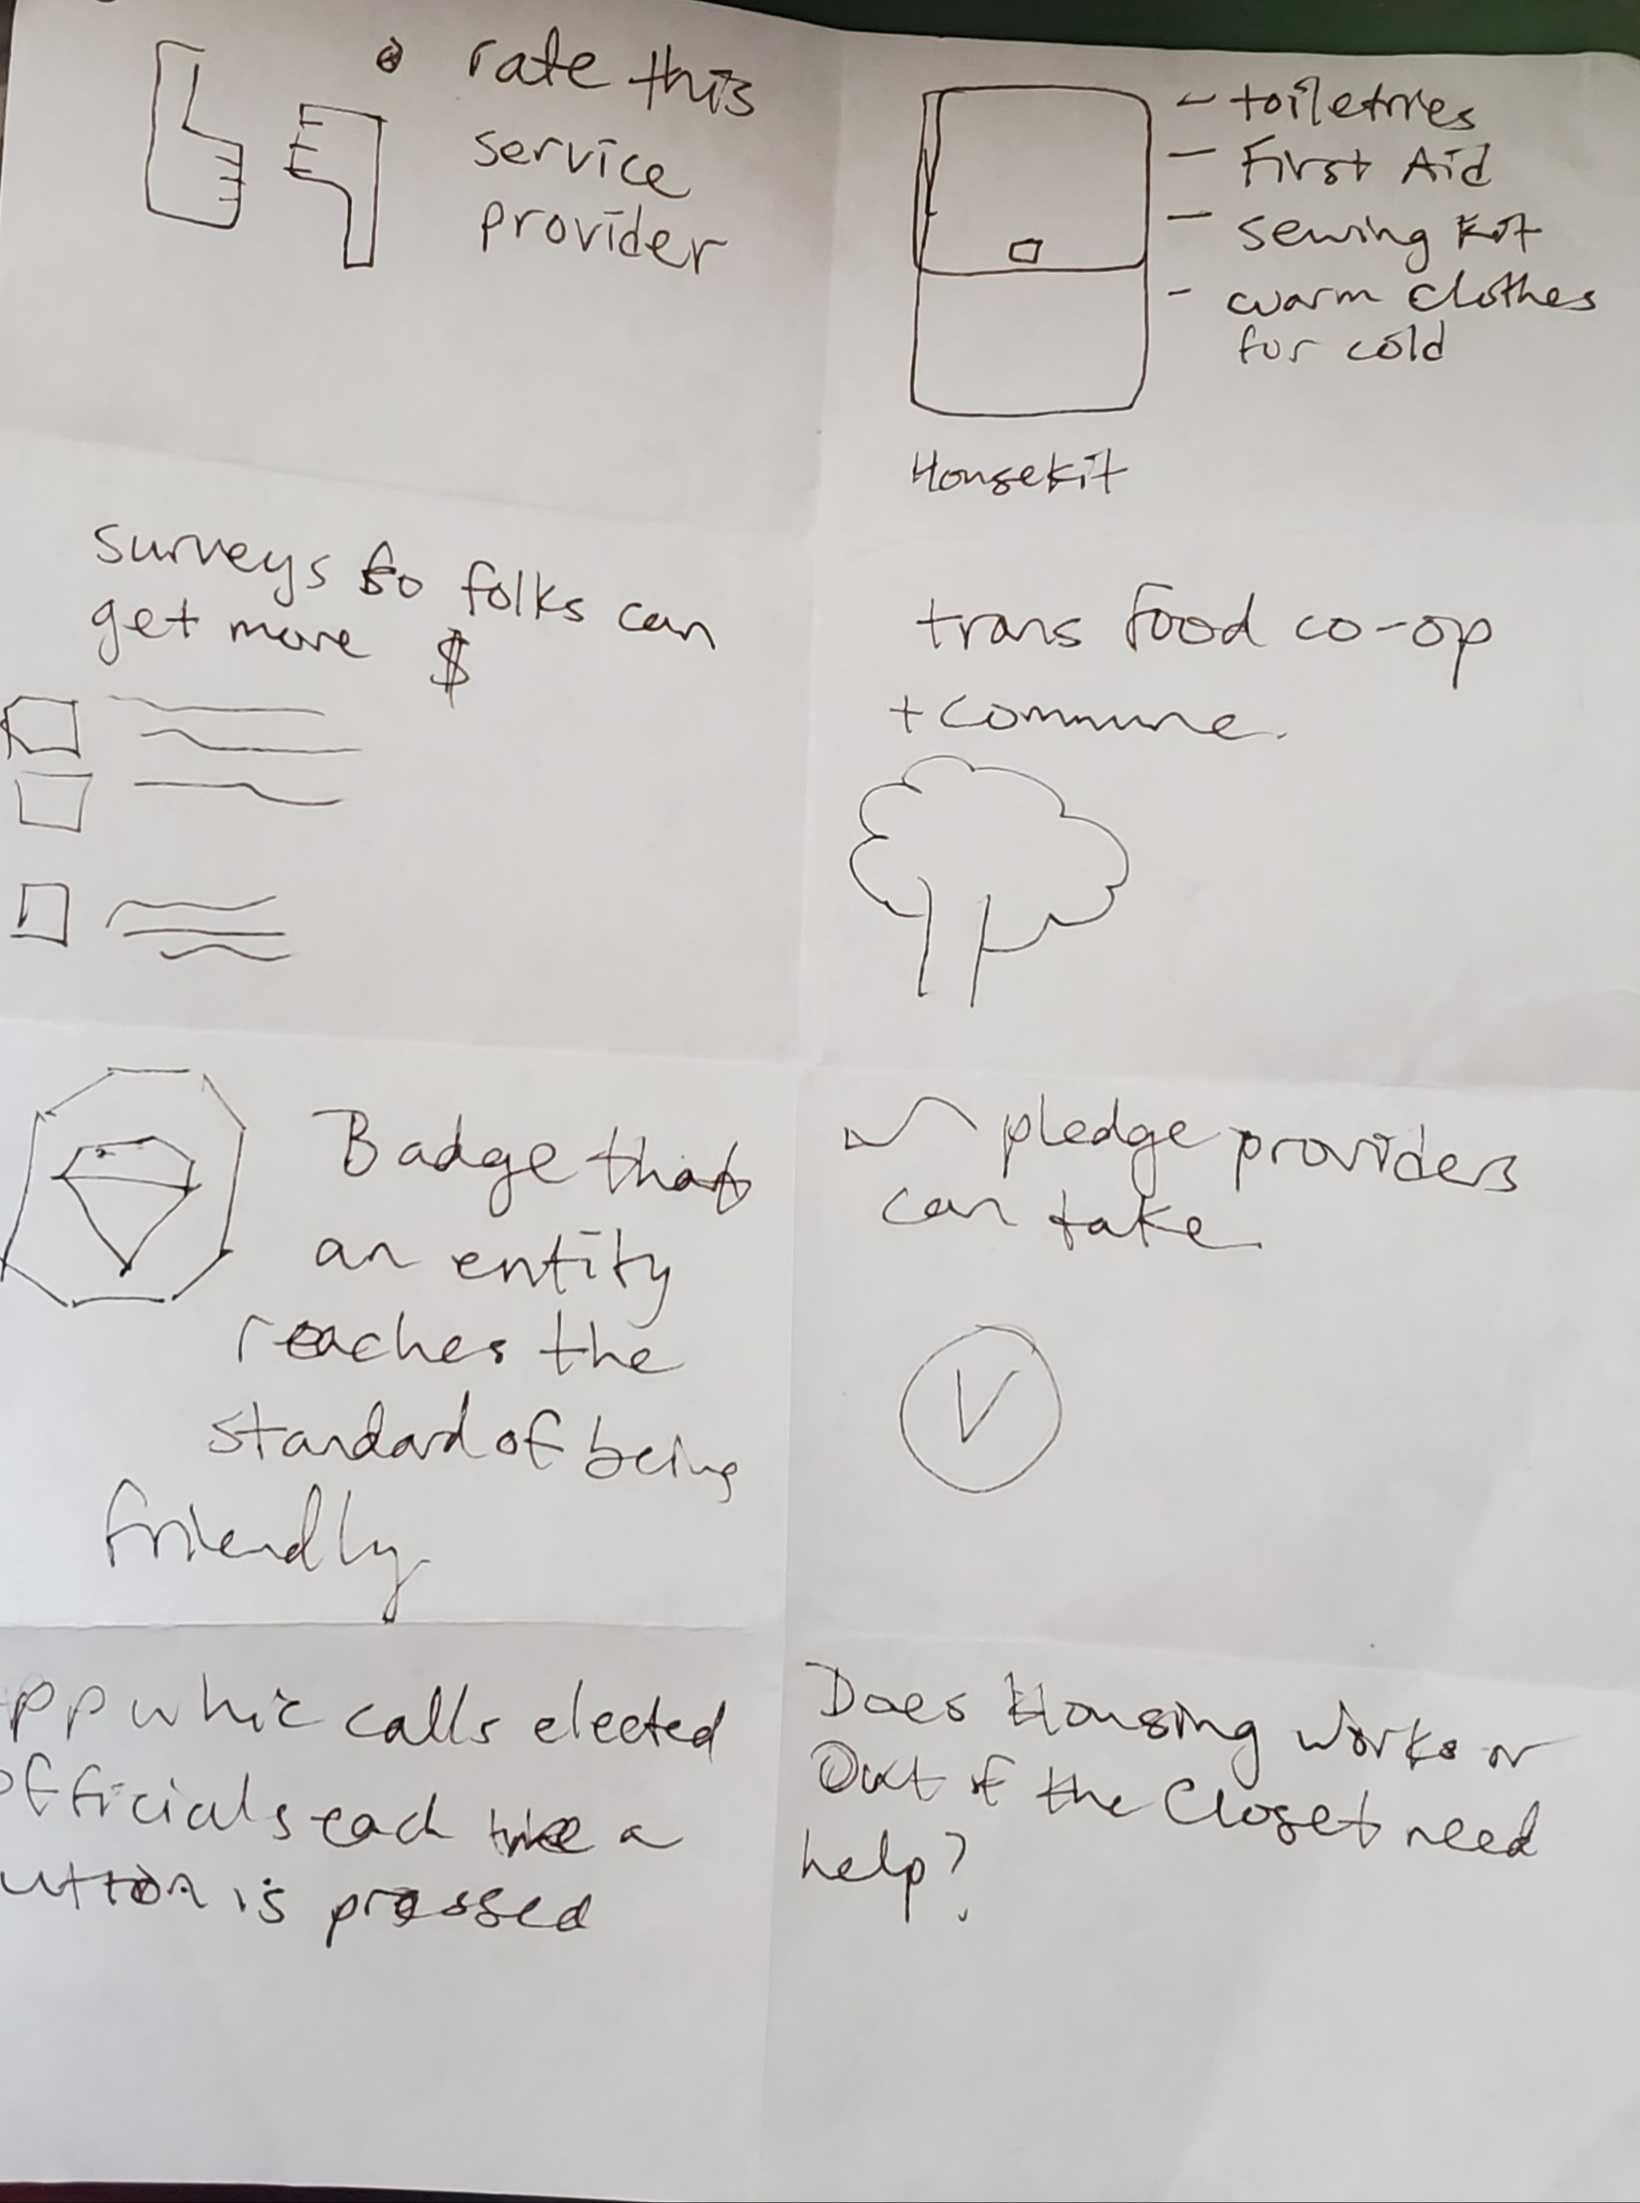 rate this
service
provider
- toiletries
- First Aid
- sewing Kit
- warm clothes
for cold
Housekit
surveys so folks can
get more $
trans food co-op
+ commune.
Badge that
an entity
reaches the
standard of being
friendly.
pledge providers
can take
V
pp whic calls elected
officials each time a
utton is pressed
Does Housing works or
Out of the Closet need
help?